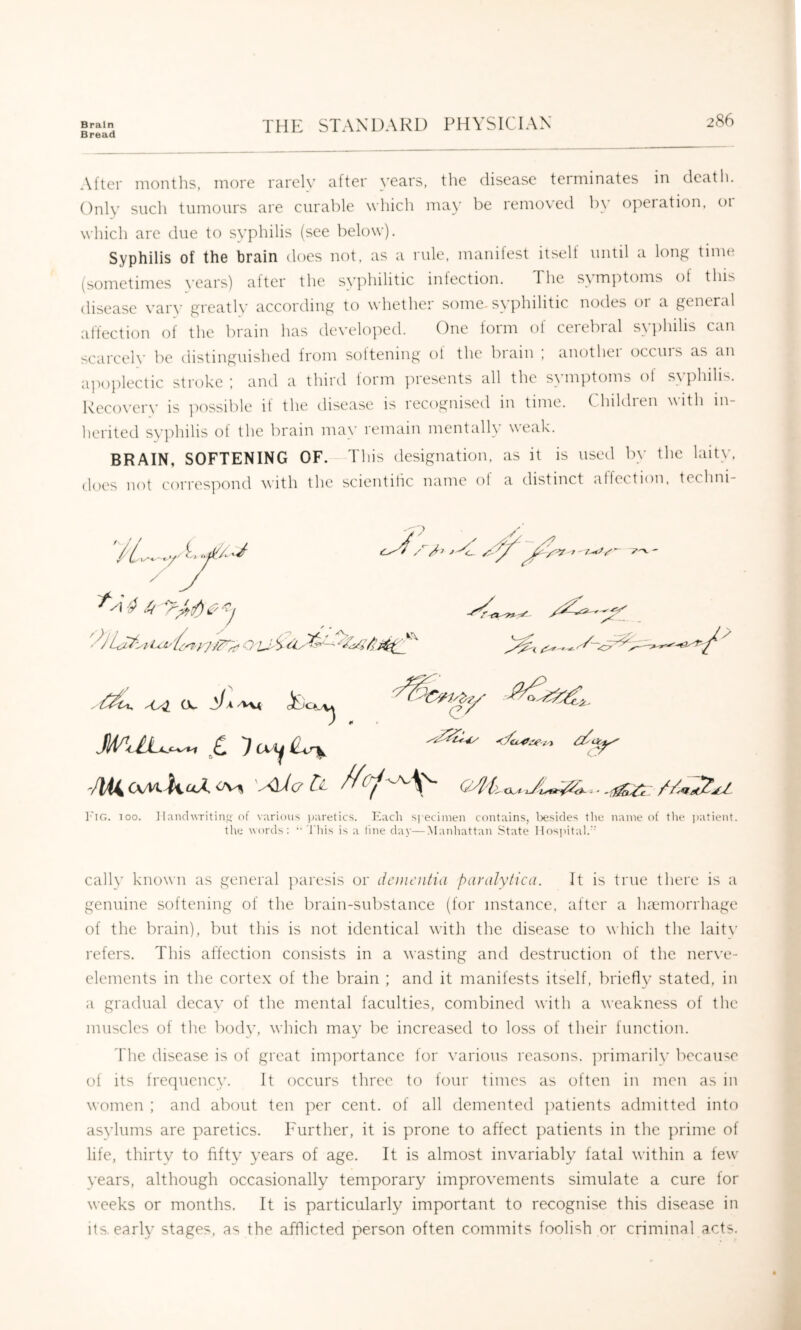 Brain
Bread
THE STANDARD PHYSICIAN
286
After months, more rarely after years, the disease terminates in death.
Only such tumours are curable which may be removed by operation, or
which are due to syphilis (see below).
Syphilis of the brain does not, as a rule, manifest itself until a long time
(sometimes years) after the syphilitic infection. The symptoms of this
disease vary greatly according to whether some syphilitic nodes or a general
affection of the brain has developed. One form of cerebral syphilis can
scarcely be distinguished from softening of the brain ; another occurs as an
apoplectic stroke ; and a third form presents all the symptoms of syphilis.
Recovery is possible if the disease is recognised in time. Children with in-
herited syphilis of the brain may remain mentally weak.
BRAIN, SOFTENING OF. This designation, as it is used by the laity,
does not correspond with the scientific name of a distinct affection, techni-
day
Fig. 100. Handwriting of various paretics. Each specimen contains, besides the name of the patient.
the words: “ This is a fine day—Manhattan State Hospital.”
cally known as general paresis or dementia paralytica. It is true there is a
genuine softening of the brain-substance (for instance, after a hæmorrhage
of the brain), but this is not identical with the disease to which the laity
refers. This affection consists in a wasting and destruction of the nerve-
elements in the cortex of the brain ; and it manifests itself, briefly stated, in
a gradual decay of the mental faculties, combined with a weakness of the
muscles of the body, which may be increased to loss of their function.
The disease is of great importance for various reasons, primarily because
of its frequency. It occurs three to four times as often in men as in
women ; and about ten per cent. of all demented patients admitted into
asylums are paretics. Further, it is prone to affect patients in the prime of
life, thirty to fifty years of age. It is almost invariably fatal within a few
years, although occasionally temporary improvements simulate a cure for
weeks or months. It is particularly important to recognise this disease in
its early stages, as the afflicted person often commits foolish or criminal acts.